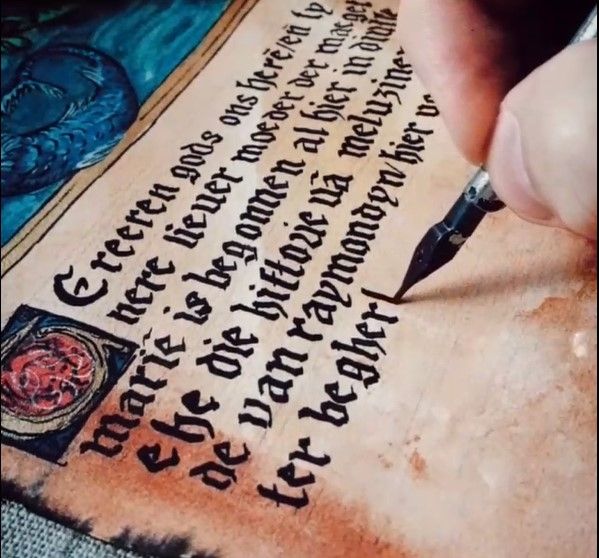 Ereeren gods ons herē/eñ ſy
nere lieuer moeder der maeget
marië is begonnen al hier in
ehe die hiſtorie vā meluzine
de van raymondyn/hier vo
ter begher